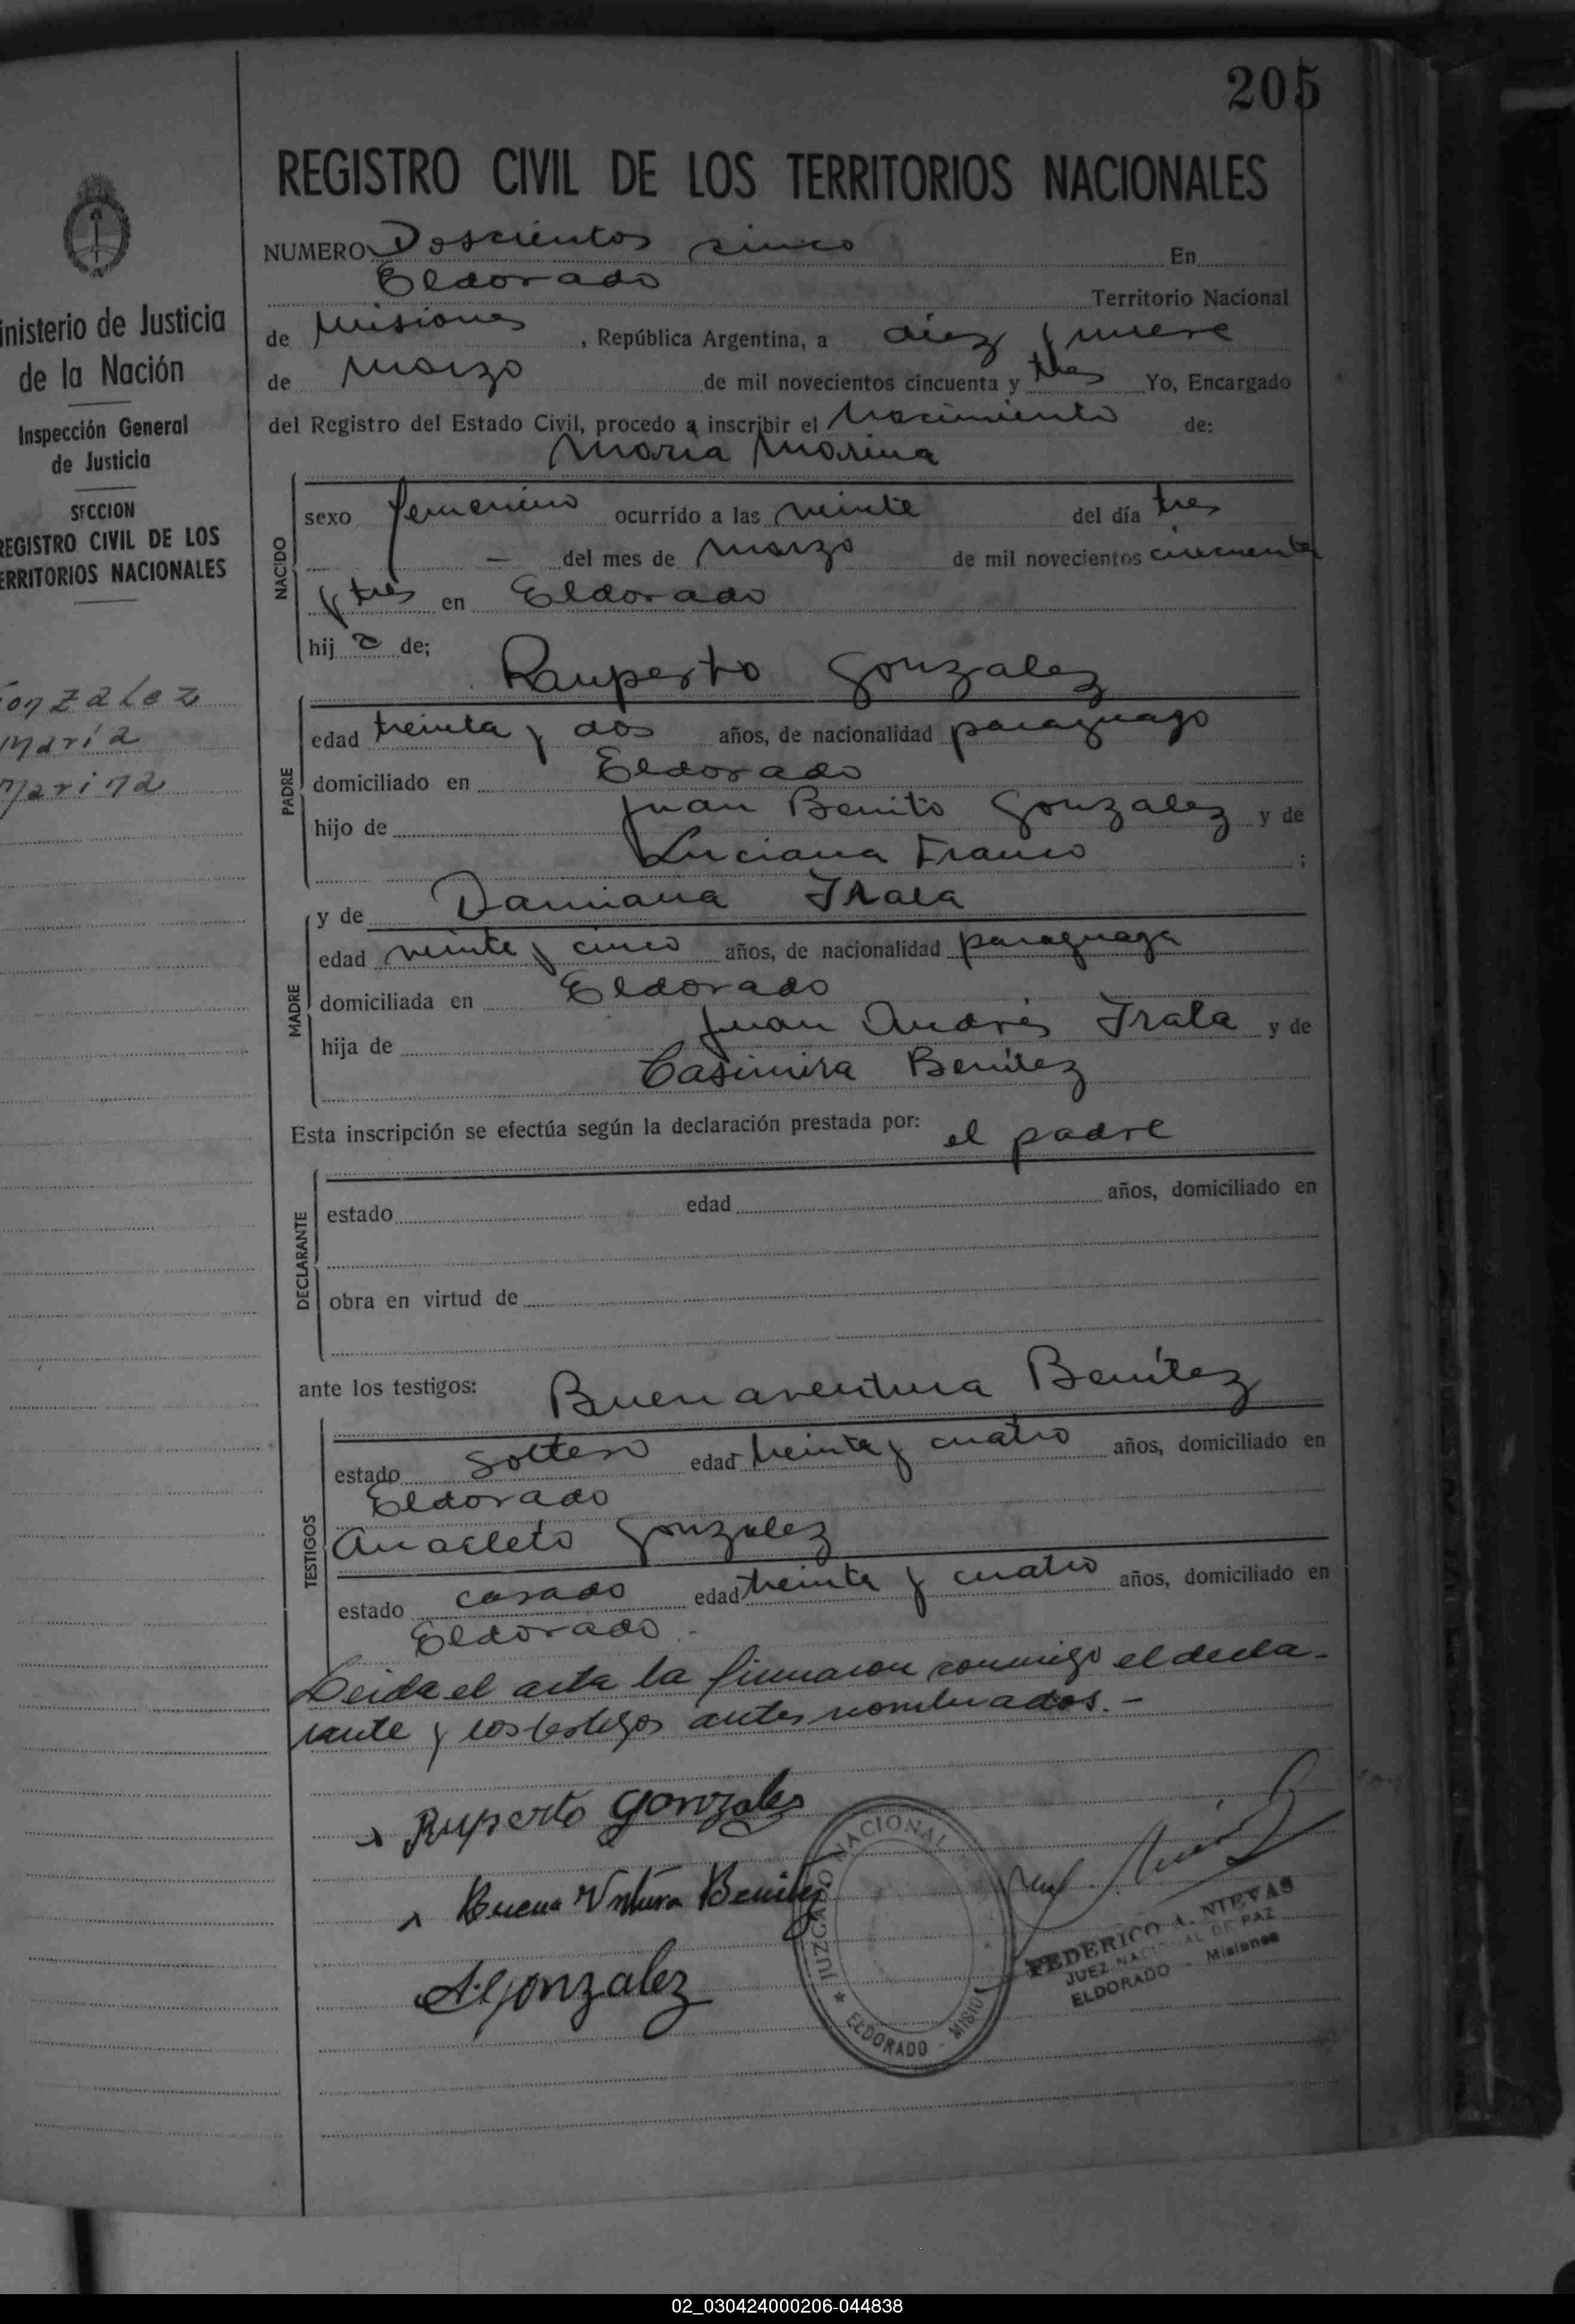 205
REGISTRO CIVIL DE LOS TERRITORIOS NACIONALES
inisterio de Justicia
de la Nación
Inspección General
de Justicia
SECCION
REGISTRO CIVIL DE LOS
ERRITORIOS NACIONALES
onzalez
María
Marina
NUMERO Doscientos cinco En
Eldorado Territorio Nacional
de Misiones, República Argentina, a diez y nueve
de Marzo de mil novecientos cincuenta y tres Yo, Encargado
del Registro del Estado Civil, procedo a inscribir el Nacimiento de:
María Marina
NACIDO
sexo femenino ocurrido a las veinte del día tres
— del mes de Marzo de mil novecientos cincuenta
y tres en Eldorado
hij a de;
Ruperto Gonzalez
PADRE
edad treinta y dos años, de nacionalidad paraguayo
domiciliado en Eldorado
hijo de Juan Benito Gonzalez y de
Luciana Franco ;
y de Damiana Irala
MADRE
edad veinte y cinco años, de nacionalidad paraguaya
domiciliada en Eldorado
hija de Juan Andrés Irala y de
Casimira Benítez
Esta inscripción se efectúa según la declaración prestada por: el padre
DECLARANTE
estado edad años, domiciliado en
obra en virtud de
ante los testigos: Buenaventura Benítez
TESTIGOS
estado soltero edad treinta y cuatro años, domiciliado en
Eldorado
Anacleto Gonzalez
estado casado edad treinta y cuatro años, domiciliado en
Eldorado.-
Leida el acta la firmaron conmigo el decla-
rante y los testigos antes nombrados.-
Ruperto Gonzales
Buena Ventura Benitez
A. Gonzalez
JUZGADO NACIONAL
★ ELDORADO - MISIO
FEDERICO A. NIEVAS
JUEZ NACIONAL DE PAZ
ELDORADO - Misiones
02_030424000206-044838